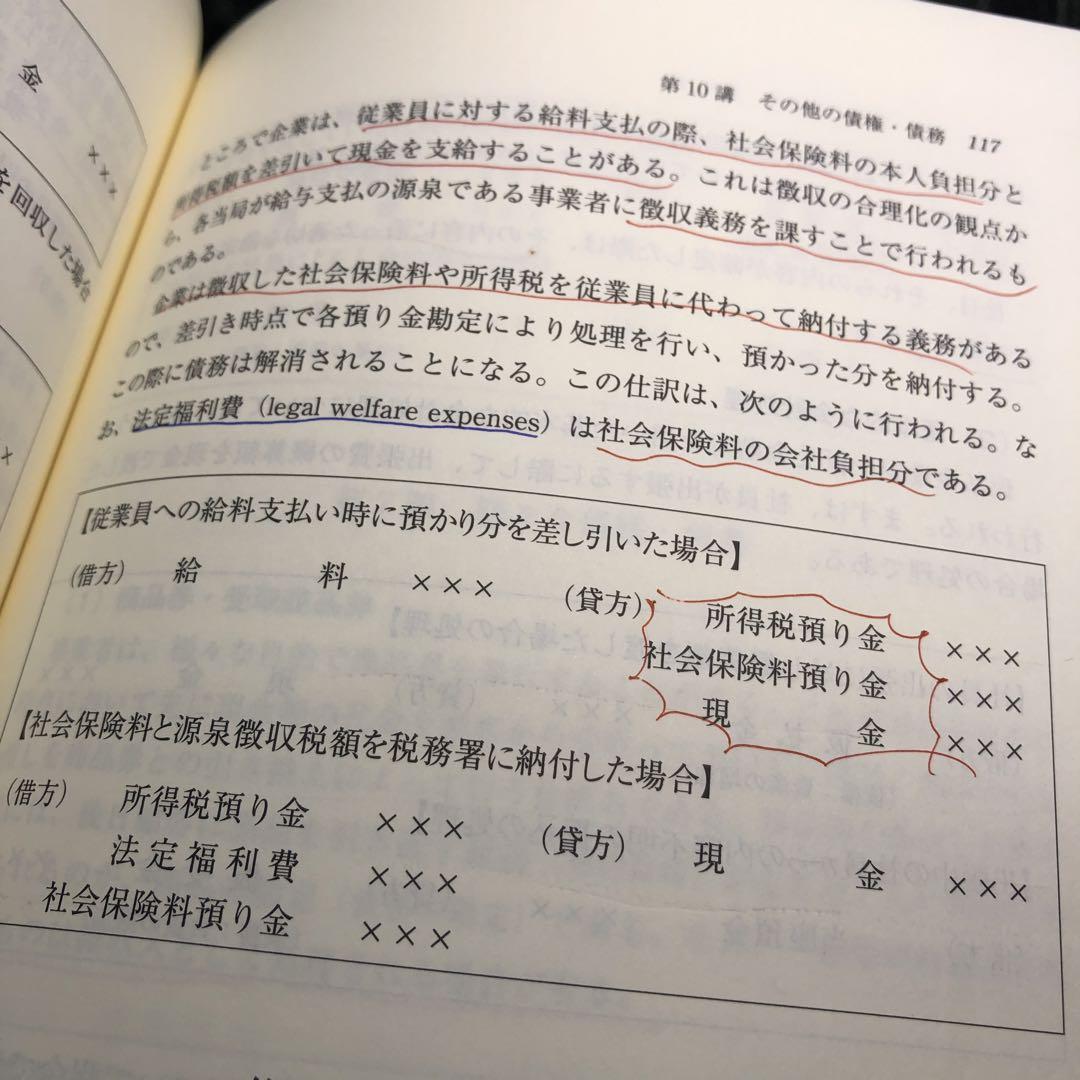 第10講 その他の債権・債務 117
ところで企業は、従業員に対する給料支払の際、社会保険料の本人負担分と
所得税額を差引いて現金を支給することがある。これは徴収の合理化の観点か
ら、各当局が給与支払の源泉である事業者に徴収義務を課すことで行われるも
のである。
企業は徴収した社会保険料や所得税を従業員に代わって納付する義務がある
ので、差引き時点で各預り金勘定により処理を行い、預かった分を納付する。
この際に債務は解消されることになる。この仕訳は、次のように行われる。な
お、法定福利費（legal welfare expenses）は社会保険料の会社負担分である。
【従業員への給料支払い時に預かり分を差し引いた場合】
（借方） 給 料 ××× （貸方） 所得税預り金 ×××
社会保険料預り金 ×××
現 金 ×××
【社会保険料と源泉徴収税額を税務署に納付した場合】
（借方） 所得税預り金 ××× （貸方） 現 金 ×××
法定福利費 ×××
社会保険料預り金 ×××
金
×××
を回収した場合